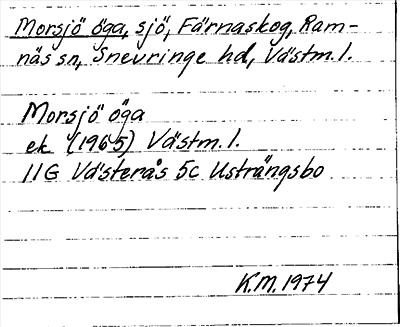 Morsjö öga, sjö, Färnaskog, Ram-
näs sn, Snevringe hd, Västm. l.
Morsjö öga
ek. (1965) Västm. l.
11G Västerås 5c Usträngsbo
K.M. 1974